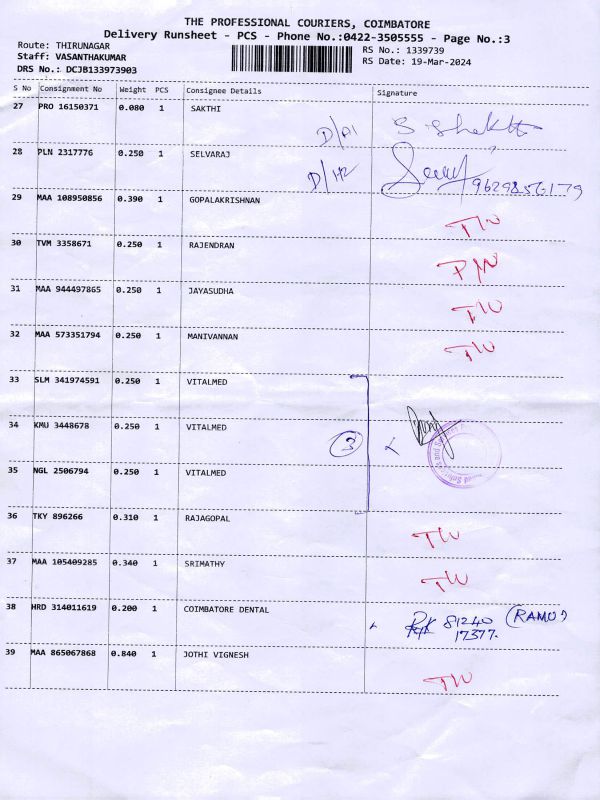 THE PROFESSIONAL COURIERS, COIMBATORE
Delivery Runsheet - PCS - Phone No.:0422-3505555 - Page No.:3
Route: THIRUNAGAR
RS No.: 1339739
Staff: VASANTHAKUMAR
RS Date: 19-Mar-2024
DRS No.: DCJB133973903
S No Consignment No Weight PCS Consignee Details Signature
27 PRO 16150371 0.080 1 SAKTHI
28 PLN 2317776 0.250 1 SELVARAJ
D/H2 9629856179
29 MAA 108950856 0.390 1 GOPALAKRISHNAN
30 TVM 3358671 0.250 1 RAJENDRAN
31 MAA 944497865 0.250 1 JAYASUDHA
32 MAA 573351794 0.250 1 MANIVANNAN
33 SLM 341974591 0.250 1 VITALMED
34 KMU 3448678 0.250 1 VITALMED
3
35 NGL 2506794 0.250 1 VITALMED
36 TKY 896266 0.310 1 RAJAGOPAL
37 MAA 105409285 0.340 1 SRIMATHY
38 HRD 314011619 0.200 1 COIMBATORE DENTAL
81240 (RAMU)
17377.
39 MAA 865067868 0.840 1 JOTHI VIGNESH